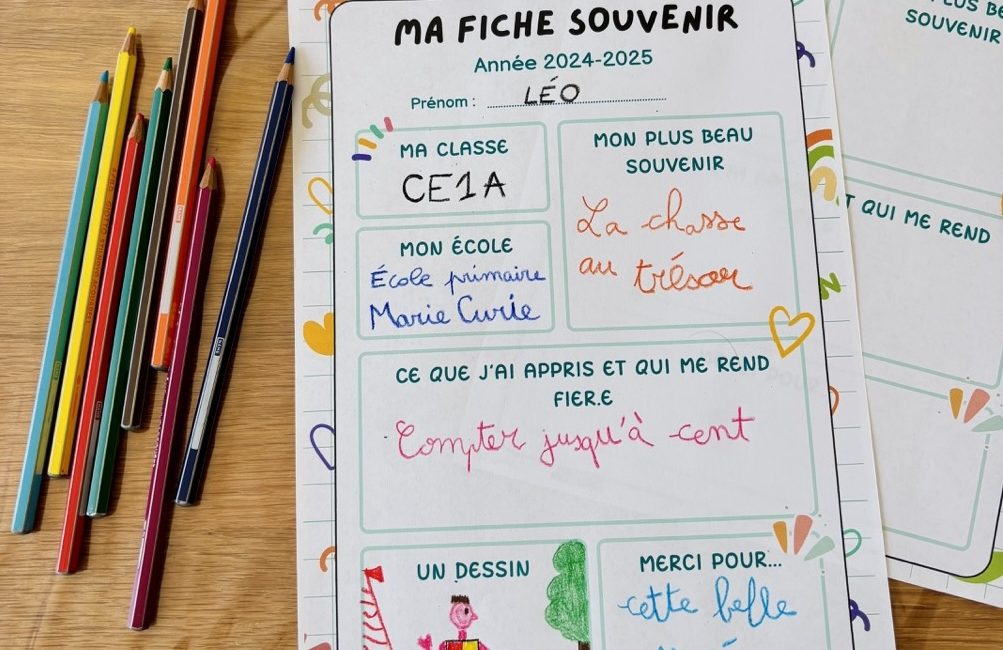 MA FICHE SOUVENIR
Année 2024-2025
Prénom : LÉO
MA CLASSE
CE1A
MON PLUS BEAU
SOUVENIR
La chasse
au trésor
MON ÉCOLE
École primaire
Marie Curie
CE QUE J'AI APPRIS ET QUI ME REND
FIER.E
Compter jusqu'à cent
UN DESSIN
MERCI POUR...
cette belle
SOUVENIR
QUI ME REND